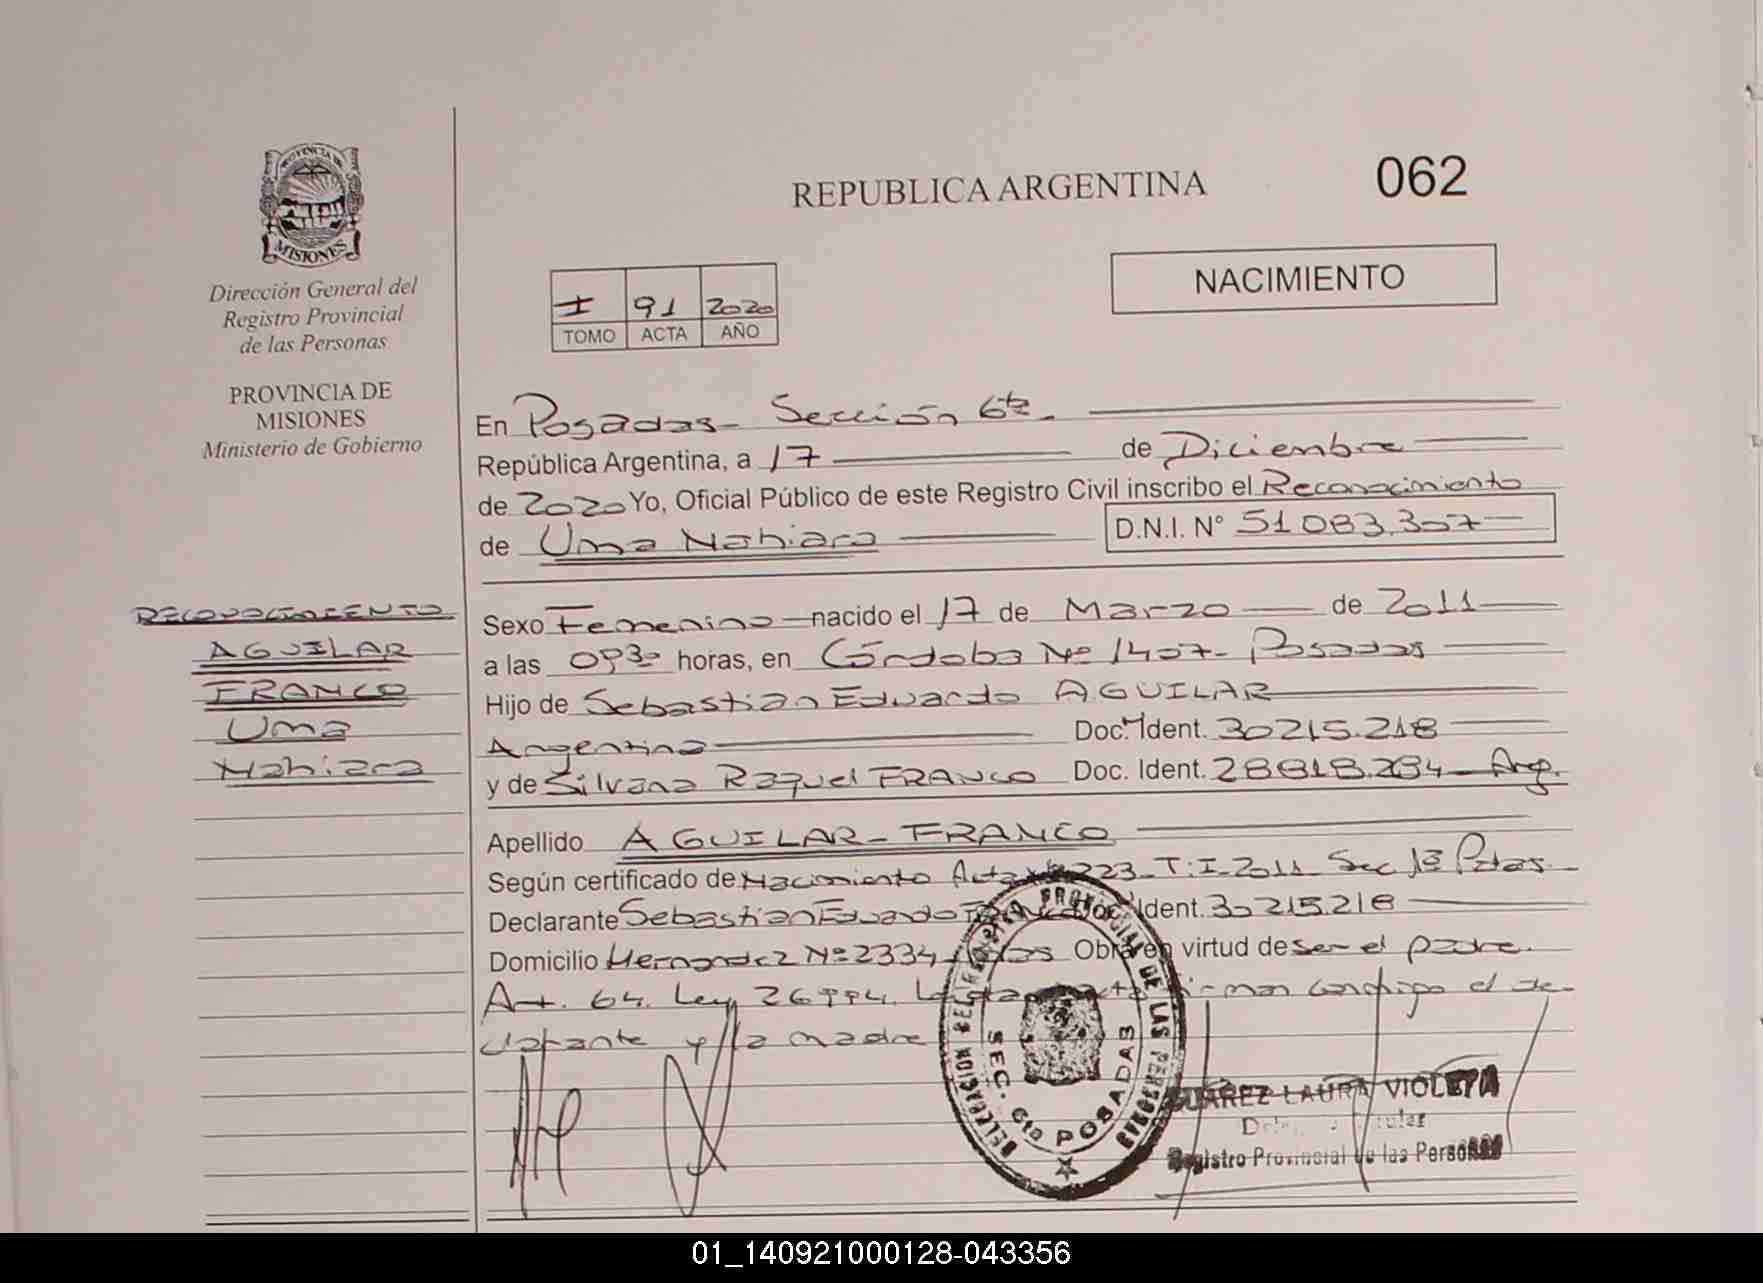 PROVINCIA DE
MISIONES
Dirección General del
Registro Provincial
de las Personas
PROVINCIA DE
MISIONES
Ministerio de Gobierno
REPUBLICA ARGENTINA
062
NACIMIENTO
I 91 2020
TOMO ACTA AÑO
En Posadas- Sección 6ta.
República Argentina, a 17 de Diciembre
de 2020 Yo, Oficial Público de este Registro Civil inscribo el Reconocimiento
de Uma Nahiara D.N.I. N° 51.083.307
RECONOCIMIENTO
AGUILAR
FRANCO
Uma
Nahiara
Sexo Femenino nacido el 17 de Marzo de 2011
a las 0930 horas, en Córdoba Nº 1407- Posadas
Hijo de Sebastian Eduardo AGUILAR
Argentina Doc. Ident. 30215.218
y de Silvana Raquel FRANCO Doc. Ident. 28818.284 Arg.
Apellido AGUILAR-FRANCO
Según certificado de Nacimiento Acta 223- T:I-2011 Sec 1ª Pdas.
Declarante Sebastian Eduardo Doc. Ident. 30215.218
Domicilio Hernandez Nº 2334 Obra en virtud de ser el padre.
Art. 64. Ley 26994. firman conmigo el de-
clarante y la madre
DELEGACION DEL REGISTRO PROVINCIAL DE LAS PERSONAS
SEC. 6ta POSADAS
SUAREZ LAURA VIOLETA
Registro Provincial de las Personas
01_140921000128-043356